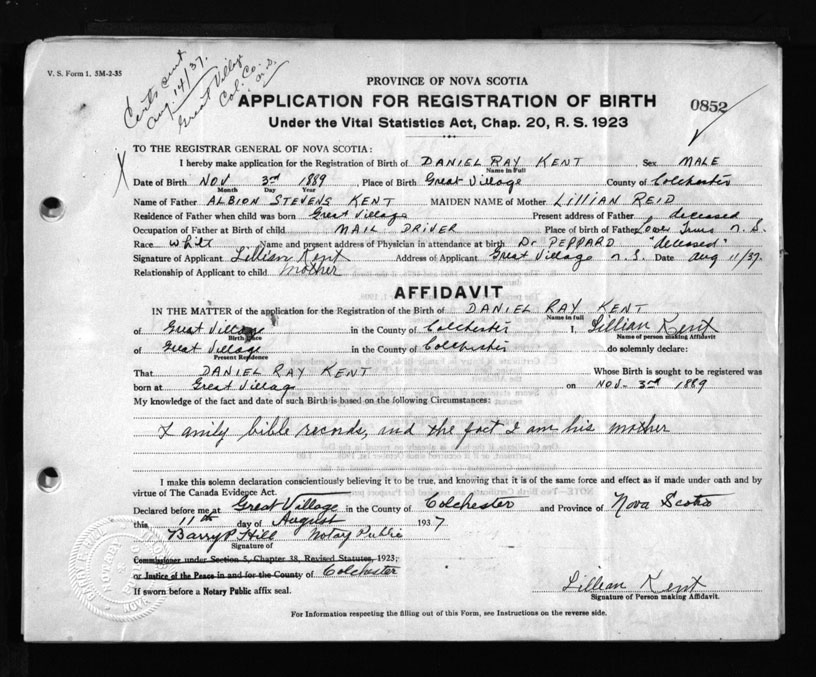 V. S. Form 1. 5M-2-35
Certs sent
Aug. 14/37.
Great Village
Col. Co.
N.S.
PROVINCE OF NOVA SCOTIA
APPLICATION FOR REGISTRATION OF BIRTH
0852
Under the Vital Statistics Act, Chap. 20, R. S. 1923
TO THE REGISTRAR GENERAL OF NOVA SCOTIA:
I hereby make application for the Registration of Birth of DANIEL RAY KENT Sex MALE
Name in Full
Date of Birth NOV 3rd 1889, Place of Birth Great Village County of Colchester
Month Day Year
Name of Father ALBION STEVENS KENT MAIDEN NAME of Mother LILLIAN REID
Residence of Father when child was born Great Village Present address of Father deceased
Occupation of Father at Birth of child MAIL DRIVER Place of birth of Father Lower Truro N.S.
Race White Name and present address of Physician in attendance at birth Dr PEPPARD "deceased"
Signature of Applicant Lillian Kent Address of Applicant Great Village N.S. Date Aug 11/37.
Relationship of Applicant to child mother
AFFIDAVIT
IN THE MATTER of the application for the Registration of the Birth of DANIEL RAY KENT
Name in full
of Great Village in the County of Colchester I, Lillian Kent
Birth Place Name of person making Affidavit
of Great Village in the County of Colchester do solemnly declare:
Present Residence
That DANIEL RAY KENT Whose Birth is sought to be registered was
born at Great Village on NOV- 3rd 1889
My knowledge of the fact and date of such Birth is based on the following Circumstances:
Family bible records, and the fact I am his mother
I make this solemn declaration conscientiously believing it to be true, and knowing that it is of the same force and effect as if made under oath and by
virtue of The Canada Evidence Act.
Declared before me at Great Village in the County of Colchester and Province of Nova Scotia
this 11th day of August 1937
Barry P Hill Notary Public
Signature of
Commissioner under Section 5, Chapter 38, Revised Statutes, 1923,
or Justice of the Peace in and for the County of Colchester
Lillian Kent
If sworn before a Notary Public affix seal.
Signature of Person making Affidavit.
For Information respecting the filling out of this Form, see Instructions on the reverse side.